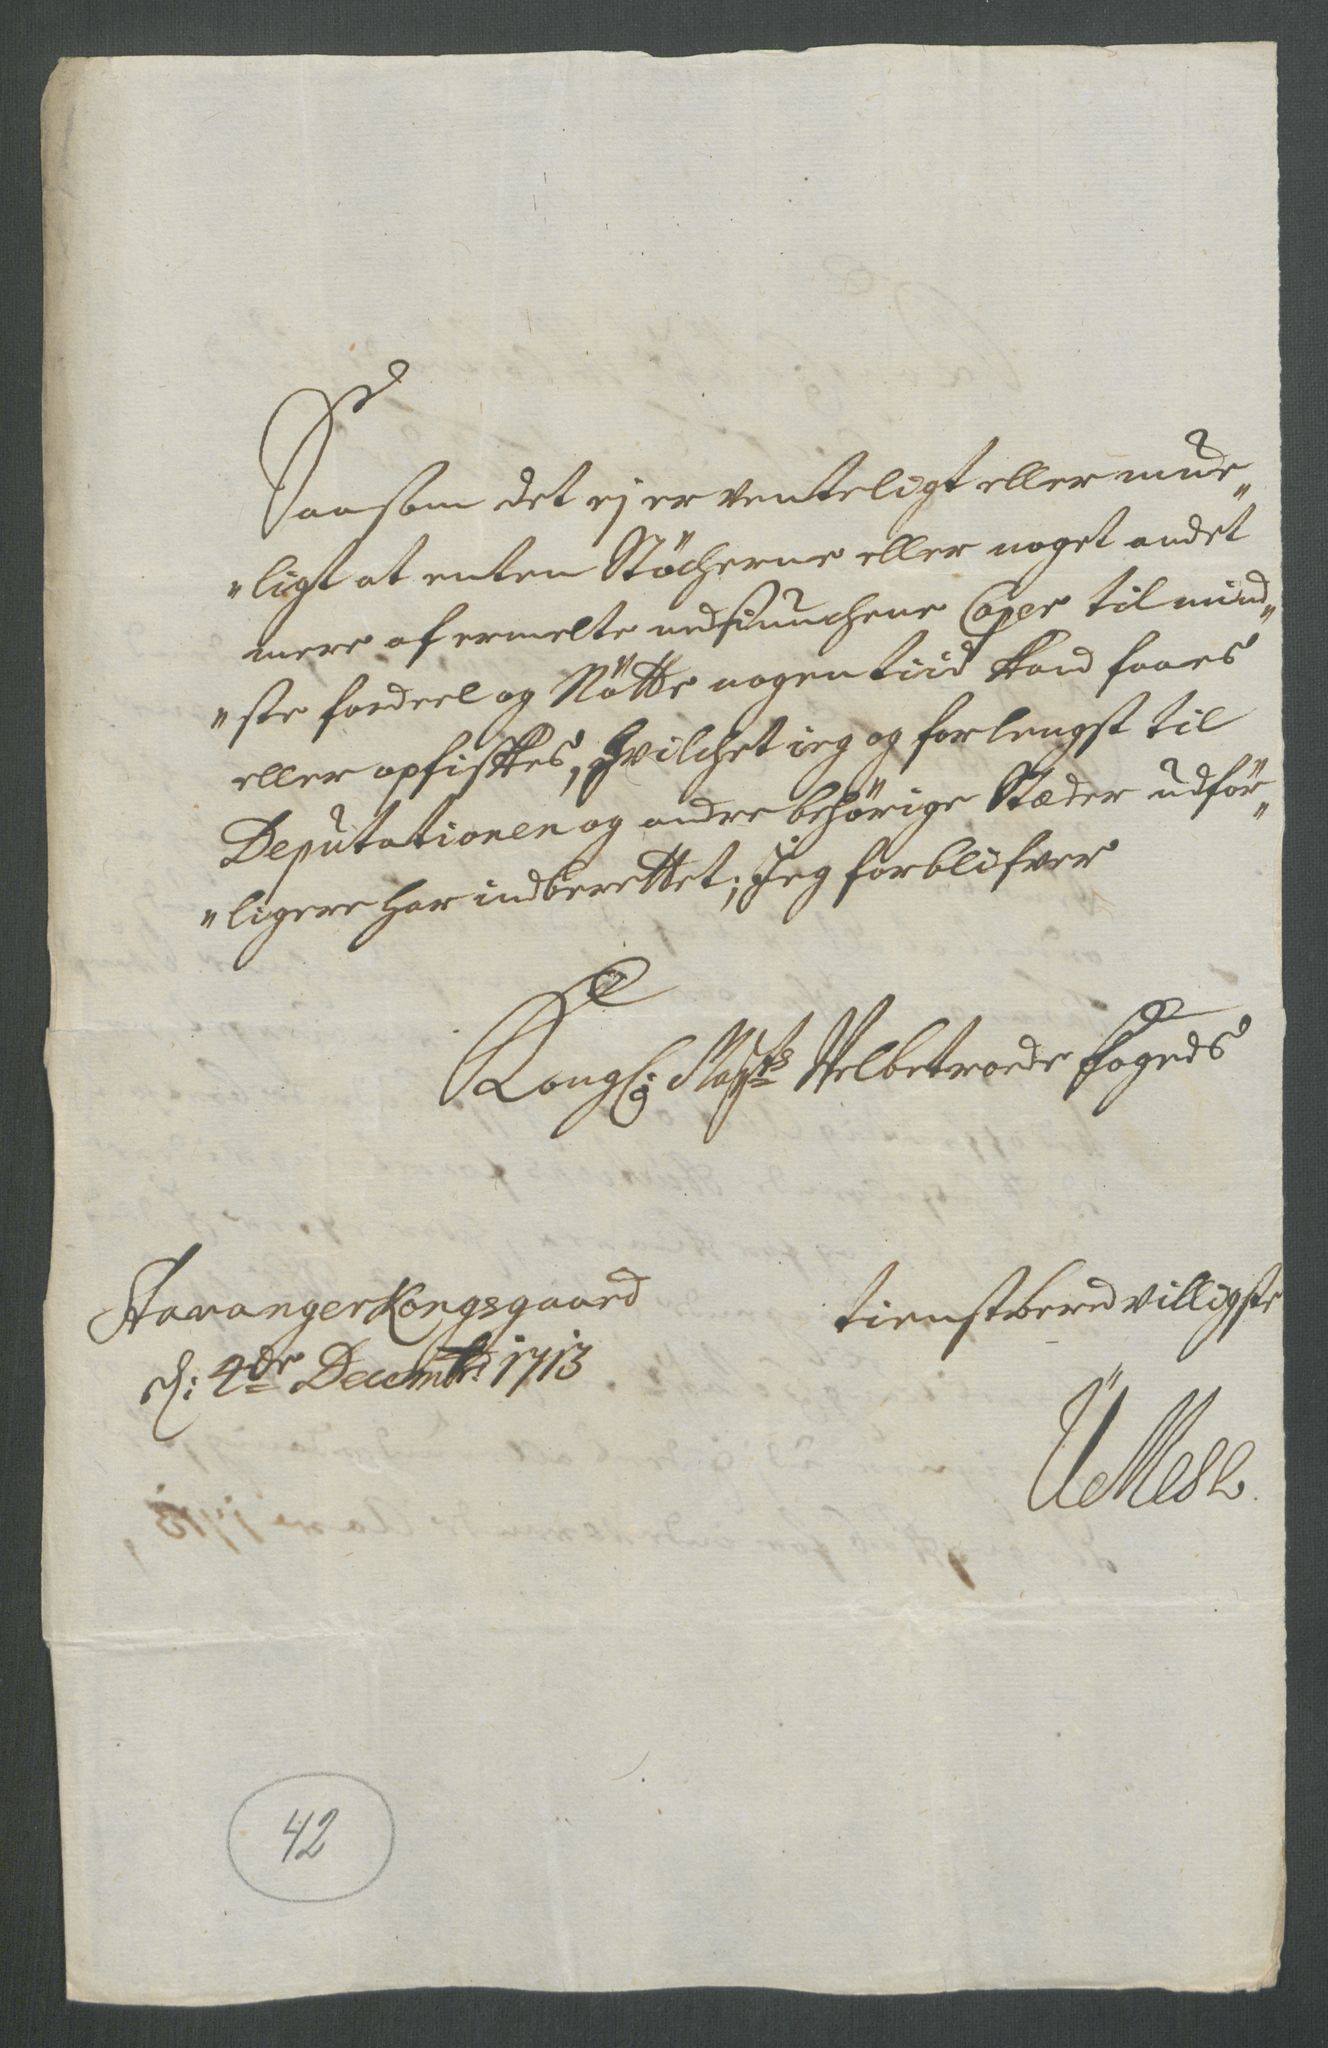 Saasom det ej er venteligt eller mue„
„ligt at enten Stöcherne eller noget andet
mere af ermelte nedsunchene Caper til mind„
„ste fordeel og Nötte nogen tiid kand faaes
eller opfiskes, hvilchet ieg og forlengst til
Deputationen og andre behörige Stæder udför„
„ligere har indberettet; Jeg forblifver
Kongl: Maÿts Velbetroede Fogeds
Stavanger Kongsgaard
d: 4de Decembr: 1713
tienstberedvilligste
42